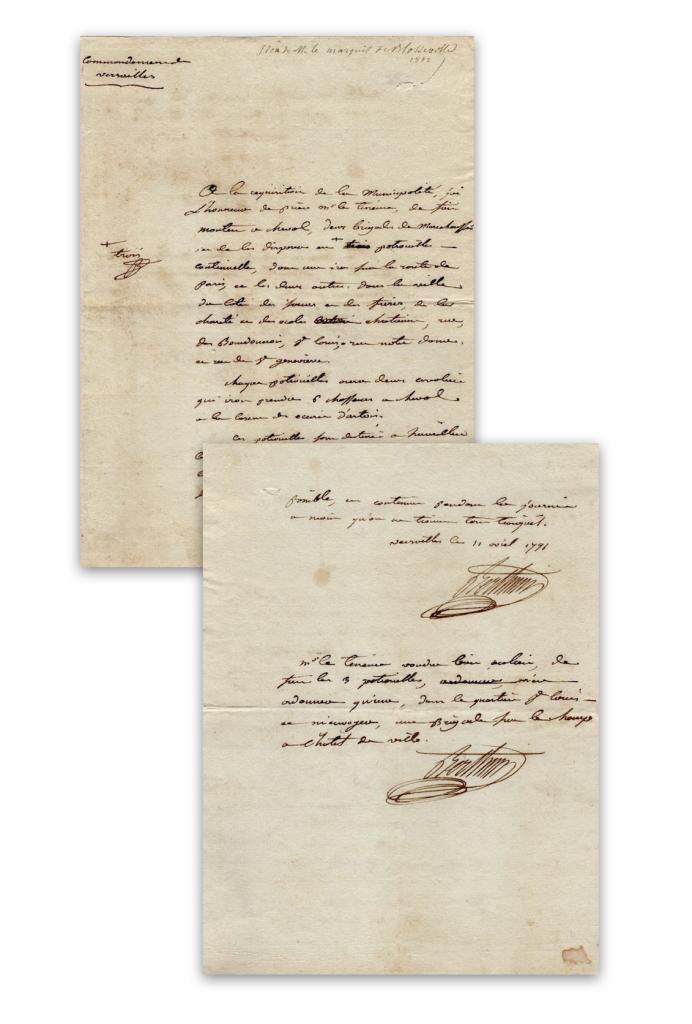 Commandement de
versailles
don de Mr. le marquis de Blosseville
1882
+
trois
A la requisition de la Municipalité, j'ai
L'honneur de prier Mr le Teneure, de faire
monter a cheval, deux brigades de Marechaussée
et de les disposer en + trois patrouille
continuelle, dont une ira sur la route de
Paris, et les deux autres dans la ville
du coté des soeurs et des freres de la
charité et des ecoles chretiene, rue
des Bourdonnois, St Louis, rue notre dame,
et rue de Ste genevieve.
chaque patrouilles aura deux cavaliers
qui iront prendre 6 chasseurs a cheval
a la caserne des ecuries d'artois.
Ces patrouilles sont destinées a surveiller
possible, et continuer pendant la journée
a moin qu'on ne trouve tout tranquil.
versailles le 11 avril 1791
Berthier
Mr le Teneure voudra bien, au lieu, de
faire les 3 patrouilles, ordonnees, n'en
ordonner qu'une, dans le quartier St Louis
et n'envoyer, une Brigade sur le champ
a l'hotel de ville.
Berthier